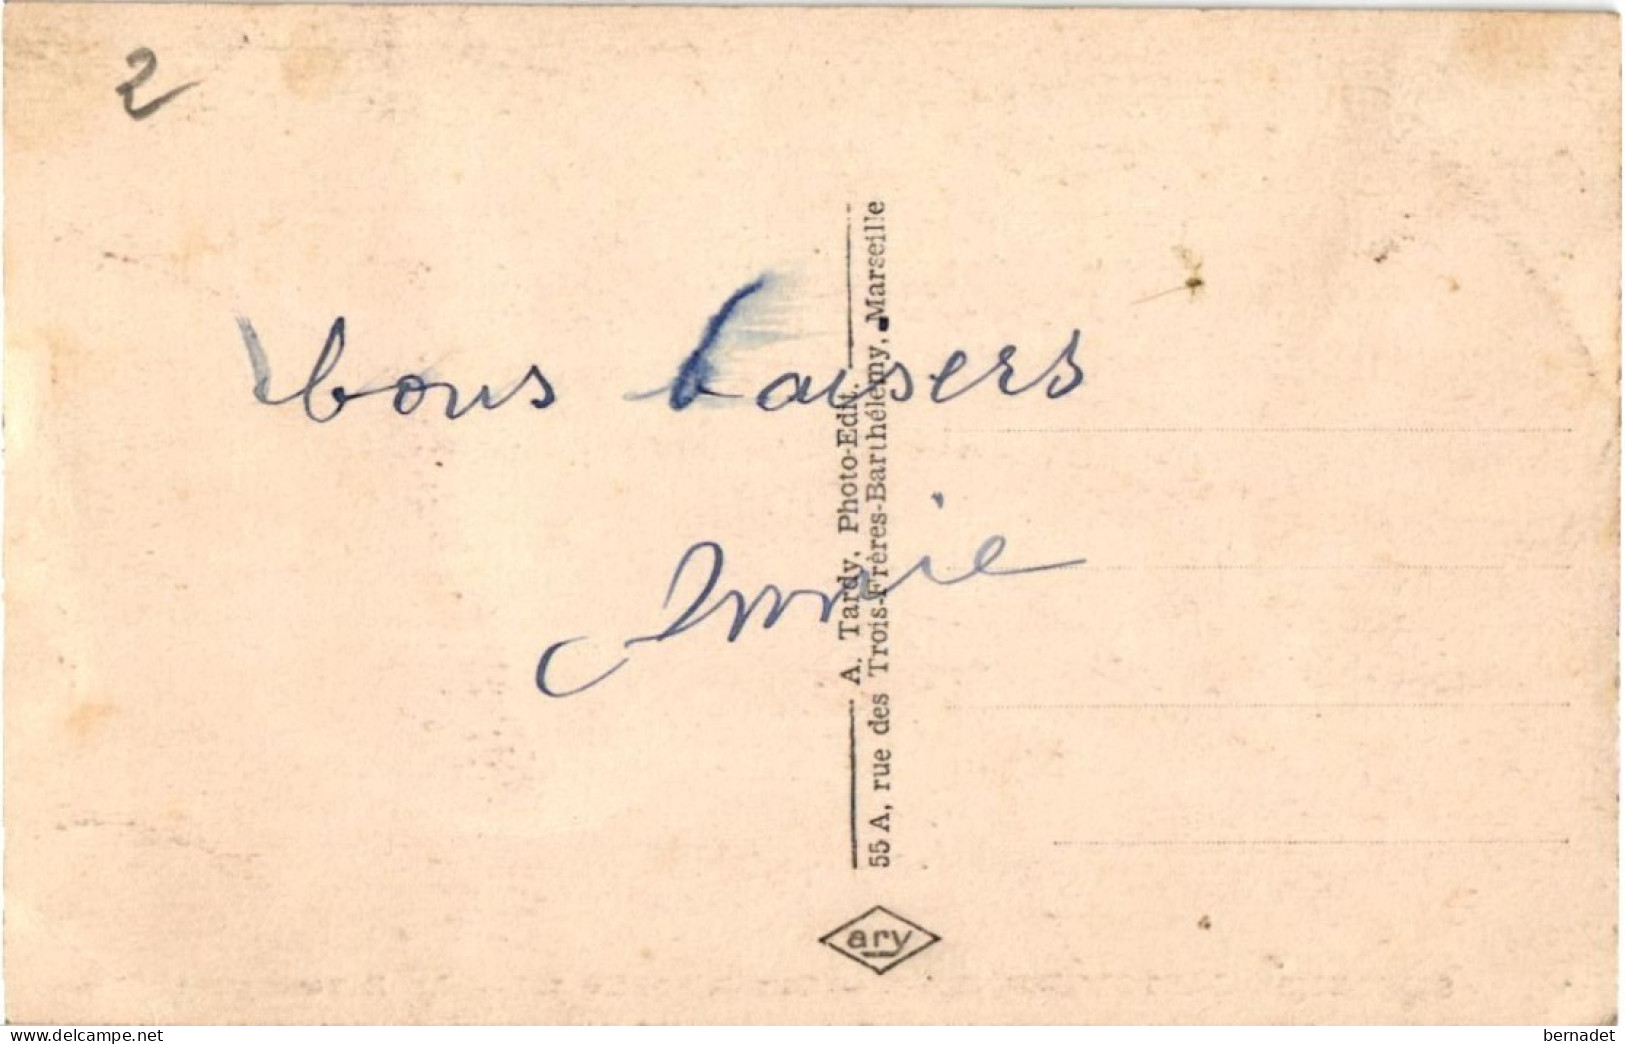 2
bons baisers
Annie
A. Tardy, Photo-Edit.
55 A, rue des Trois-Frères-Barthélemy, Marseille
ary
www.delcampe.net
bernadet